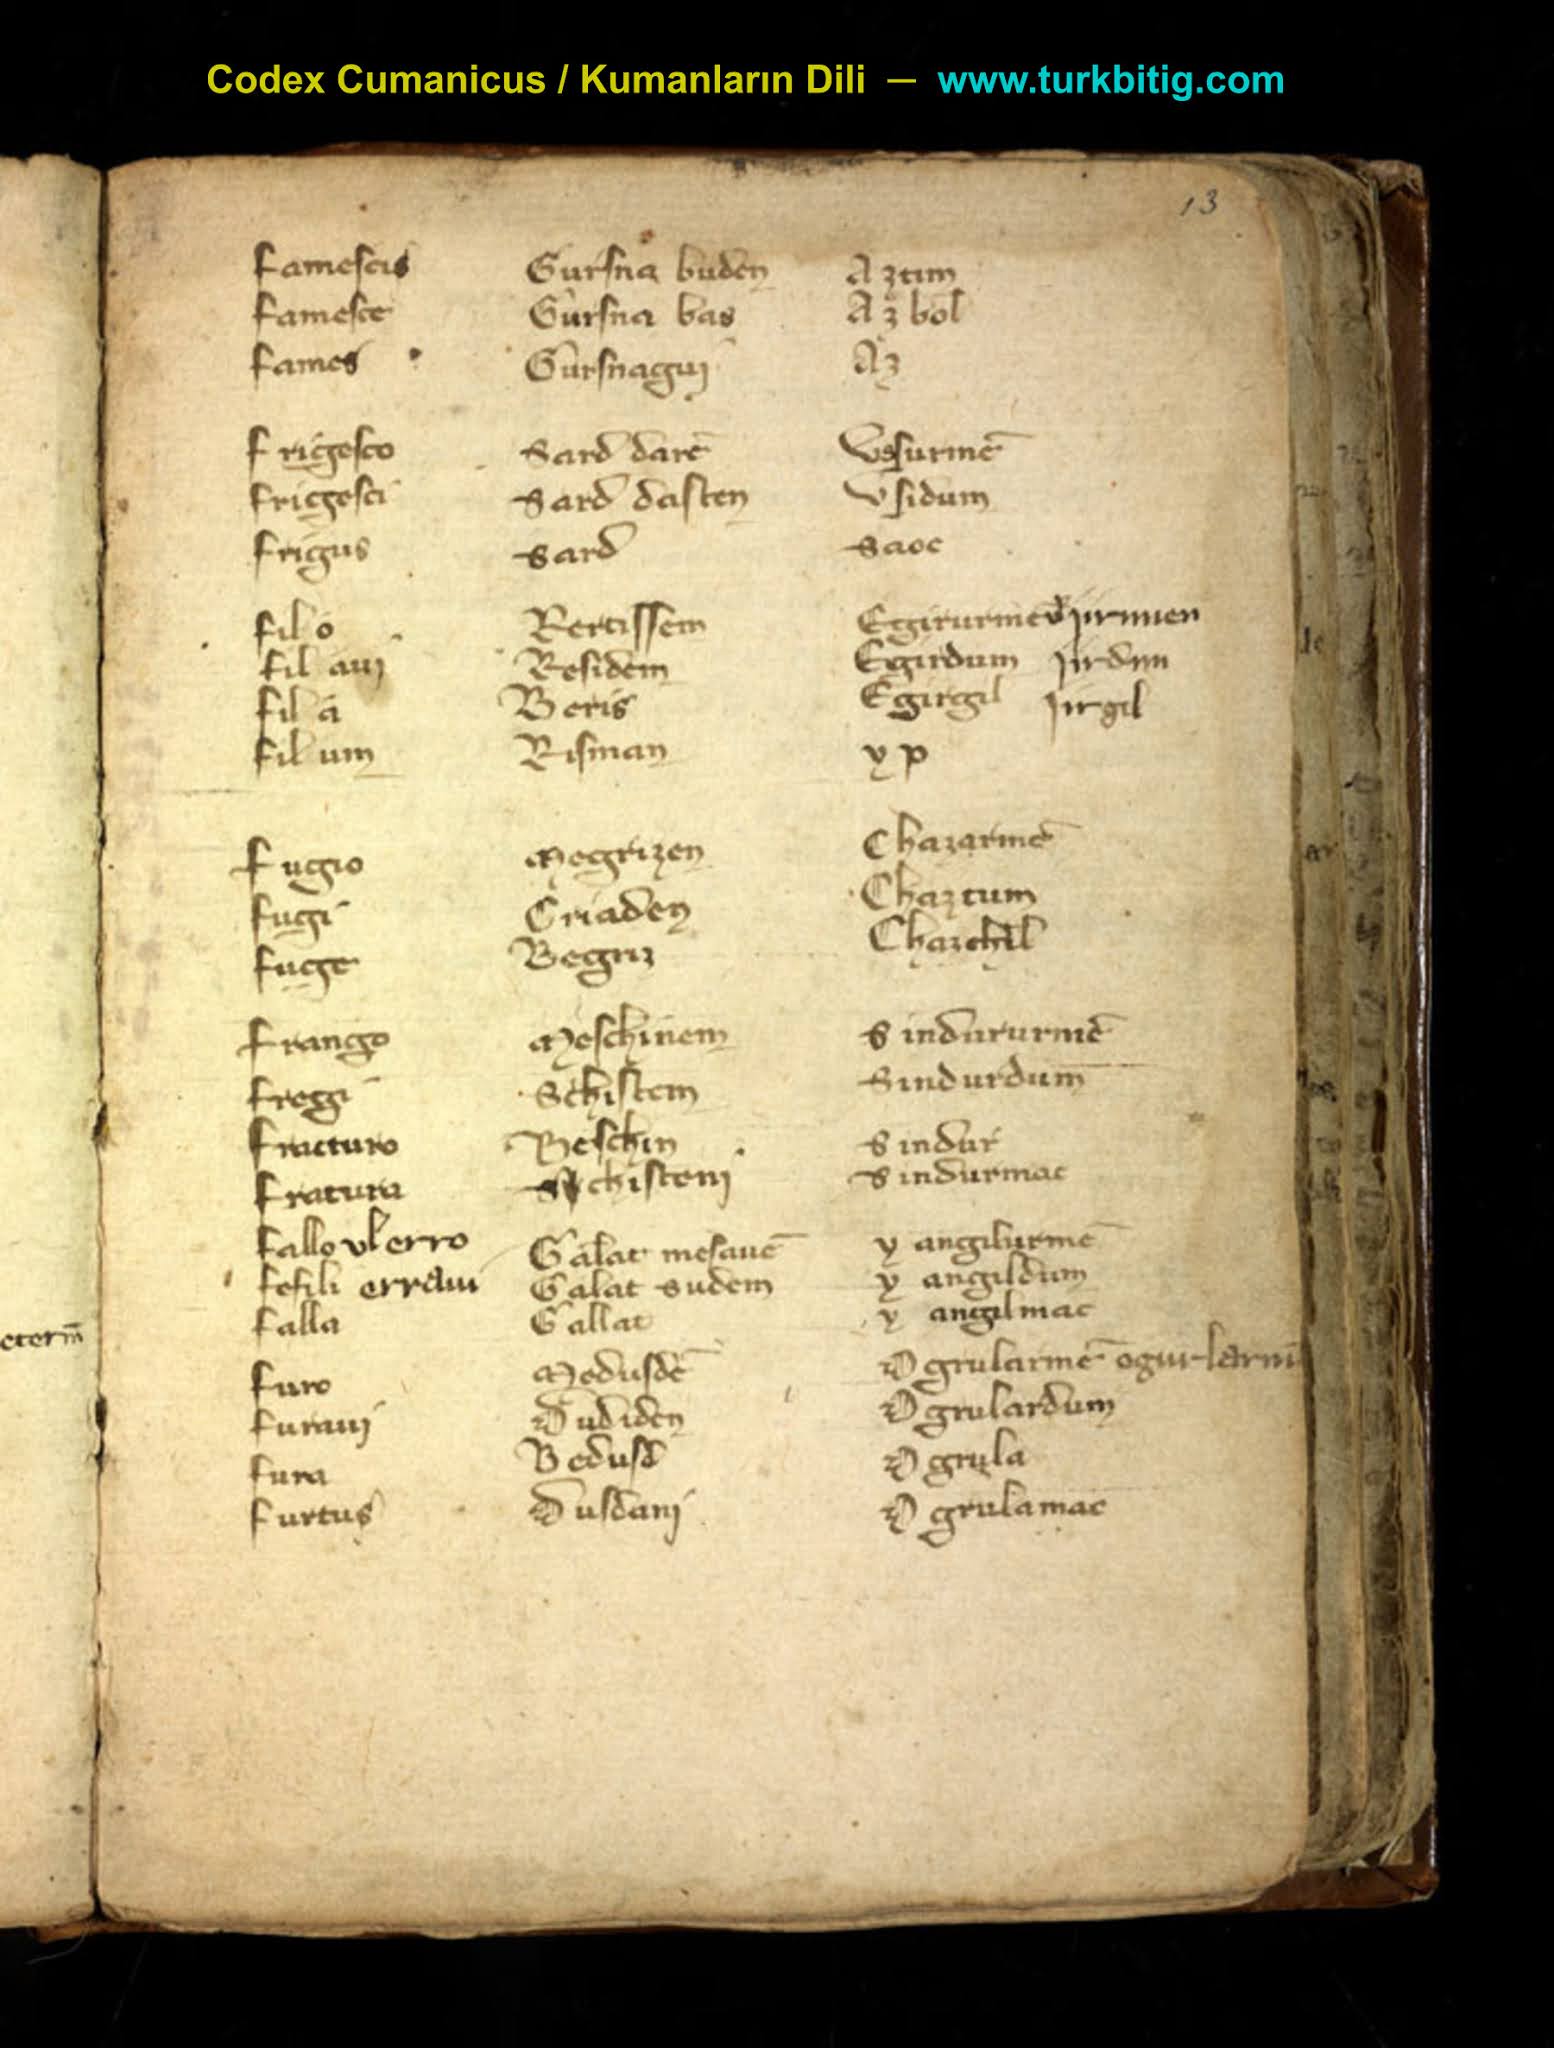 Codex Cumanicus / Kumanların Dili — www.turkbitig.com
13
famescis Gursna buden Aztim
famesce Gursna bas Az bol
fames Gursnagui Az
frigesco Sard darē vsurmē
frigesci Sard dasten vsidum
frigus Sard Saoc
filo Rertissem Egirurmen jirmen
fil aui Residem Egirdum jirdim
fil a Beris Egirgil jirgil
fil um Risman yp
fugio Megrizen Chazarmē
fugi Criaden Chaztum
fuge Begriz Chazchil
frango Meschinem Sindururmē
fregi Schistem Sindurdum
fracturo Beschin Sindur
fratura Schisteni Sindurmac
fallo vl erro Galat mesauē yangilurmē
fefili erraui Galat sudem yangildum
falla Gallat yangilmac
eterm̄
furo Medusdē Ogrularmē ogurlarm
furaui Dudiden Ogrulardum
fura Bedusd Ogrula
furtus Dusdani Ogrulamac